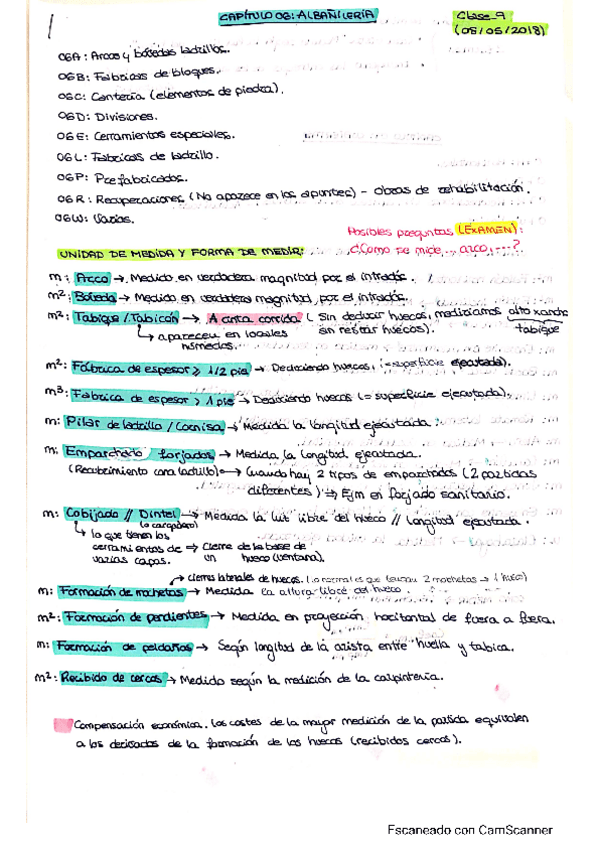 CAPÍTULO 06: ALBAÑILERÍA
Clase_9
(08/05/2018)
06A: Arcos y bóvedas ladrillos.
06B: Fábricas de bloques.
06C: Cantería (elementos de piedra).
06D: Divisiones.
06E: Cerramientos especiales.
06L: Fábricas de ladrillo.
06P: Prefabricados.
06R: Recuperaciones (No aparece en los apuntes) - obras de rehabilitación.
06W: Varios.
Posibles preguntas (EXAMEN):
¿Cómo se mide... arco,...?
UNIDAD DE MEDIDA Y FORMA DE MEDIR:
m: Arco → Medido en verdadera magnitud por el intradós.
m²: Bóveda → Medido en verdadera magnitud, por el intradós.
m²: Tabique / Tabicón → A cinta corrida (Sin deducir huecos, mediríamos alto x ancho
sin restar huecos). tabique
↳ aparecen en locales
húmedos.
m²: Fábrica de espesor ≥ 1/2 pie → Deduciendo huecos. (= superficie ejecutada).
m³: Fábrica de espesor > 1 pie → Deduciendo huecos (= superficie ejecutada).
m: Pilar de ladrillo / Cornisa → Medida la longitud ejecutada.
m: Emparchado forjados → Medida la longitud ejecutada.
(Recubrimiento cara ladrillo) → Cuando hay 2 tipos de emparchados (2 partidas
diferentes) ⇒ Ejm en forjado sanitario.
m: Cobijado // Dintel → Medida la luz libre del hueco // longitud ejecutada.
(o cargadero)
↳ lo que tienen los
cerramientos de ⇒ Cierre de la base de
varias capas. un hueco (ventana).
→ cierres laterales de huecos. (Lo normal es que tengan 2 mochetas → 1 hueco)
m: Formación de mochetas → Medida la altura libre del hueco.
m²: Formación de pendientes → Medida en proyección horizontal de fuera a fuera.
m: Formación de peldaños → Según longitud de la arista entre huella y tabica.
m²: Recibido de cercos → Medido según la medición de la carpintería.
Compensación económica. Los costes de la mayor medición de la partida equivalen
a los derivados de la formación de los huecos (recibidos cercos).
Escaneado con CamScanner